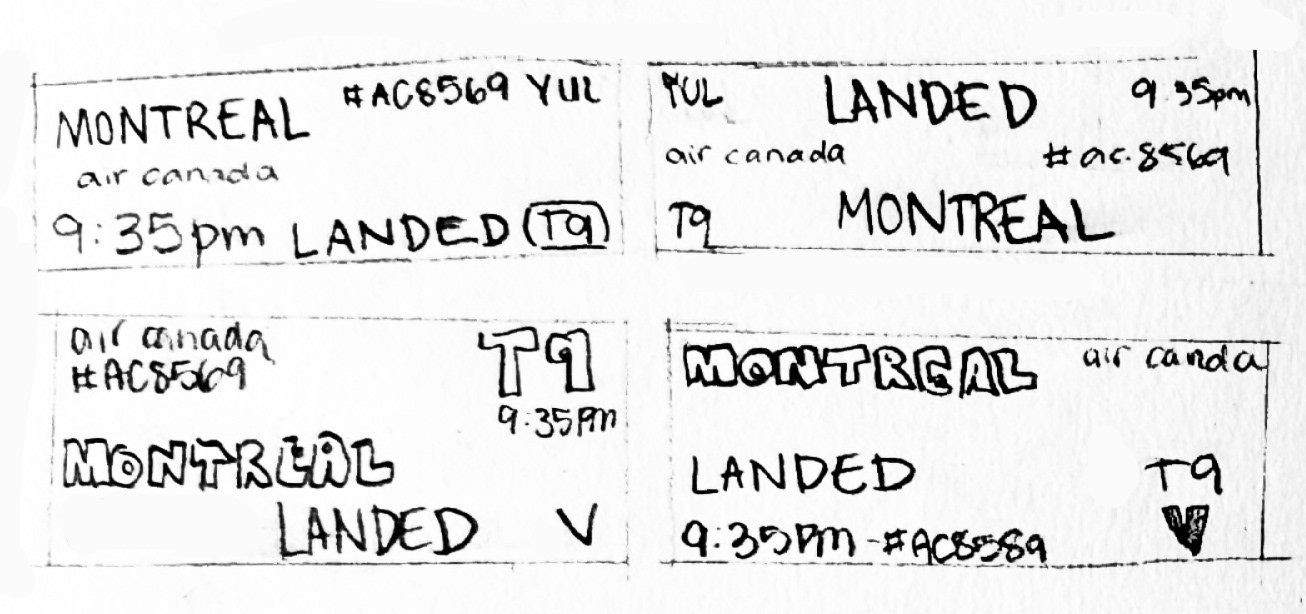 MONTREAL #AC8569 YUL
air canada
9:35pm LANDED T9
YUL LANDED 9 35pm
air canada #ac.8569
T9 MONTREAL
air canada T9
#AC8569
9:35PM
MONTREAL
LANDED V
MONTREAL air canda
LANDED T9
9:35PM - #AC8589 V